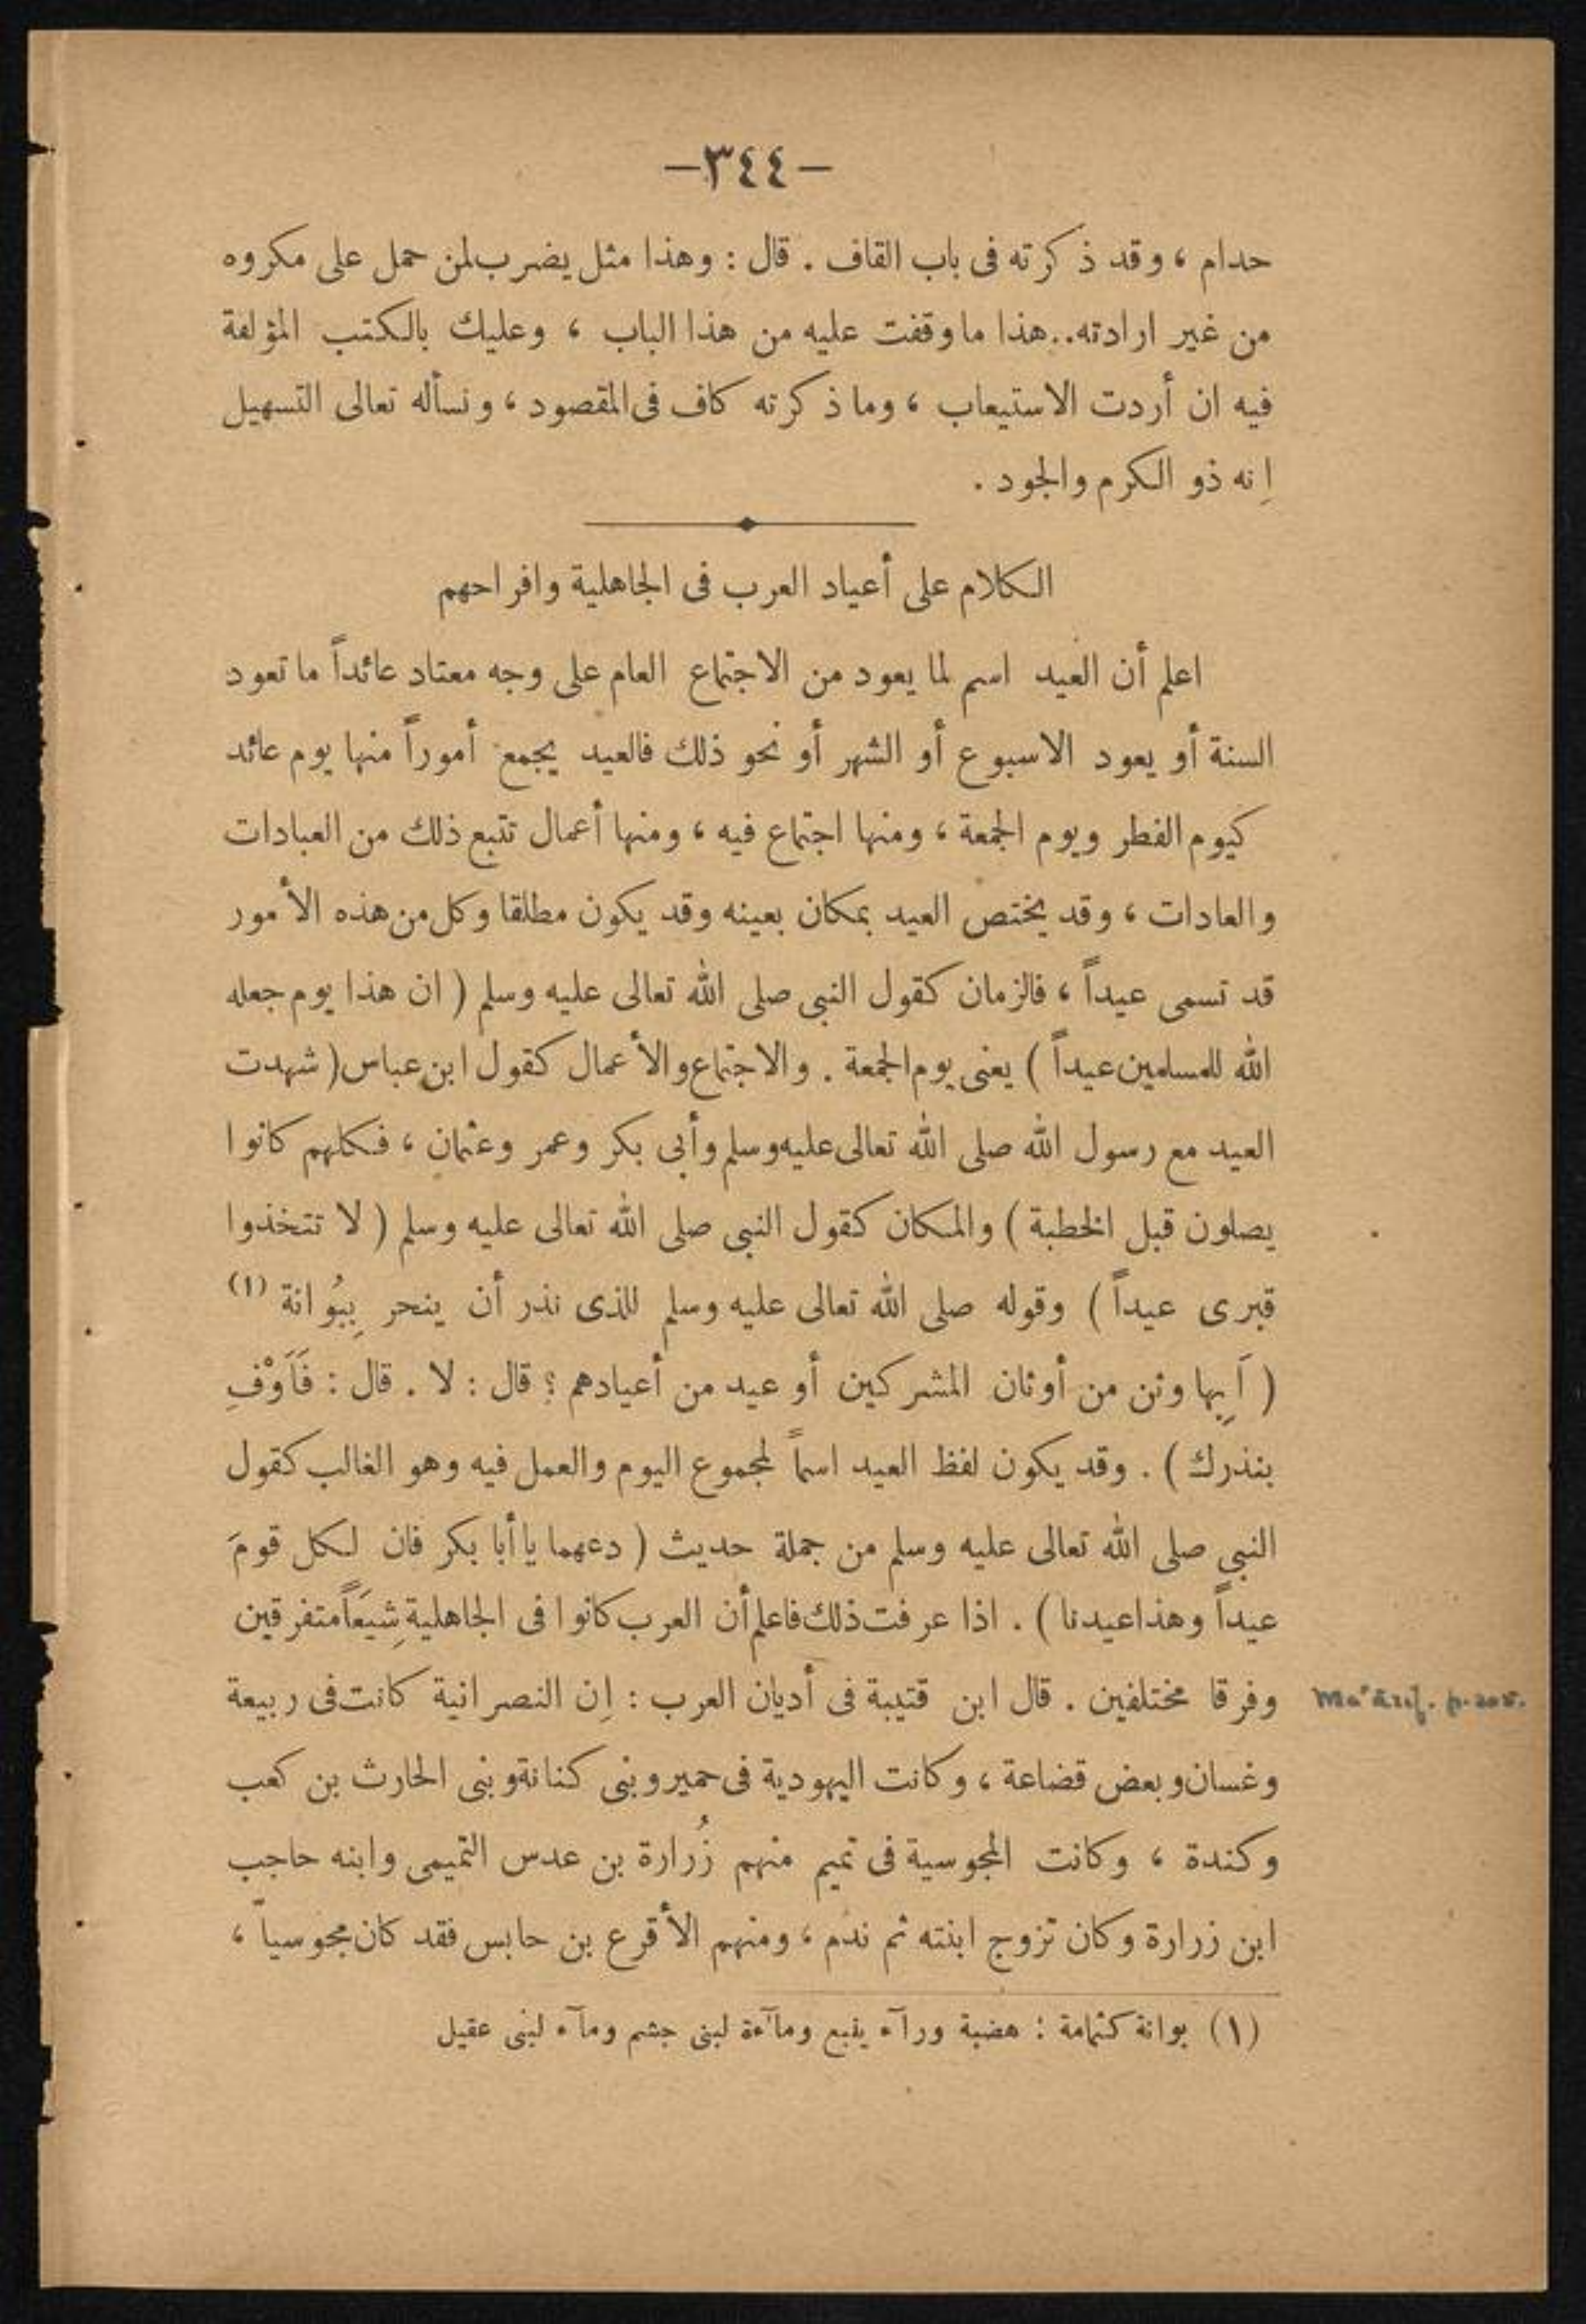 —٣٤٤—
حدام ، وقد ذكرته فى باب القاف . قال : وهذا مثل يضرب لمن حمل على مكروه
من غير ارادته.. هذا ما وقفت عليه من هذا الباب ، وعليك بالكتب المؤلفة
فيه ان أردت الاستيعاب ، وما ذكرته كاف فى المقصود ، ونسأله تعالى التسهيل
إنه ذو الكرم والجود .
الكلام على أعياد العرب فى الجاهلية وافراحهم
اعلم أن العيد اسم لما يعود من الاجتماع العام على وجه معتاد عائداً ما تعود
السنة أو يعود الاسبوع أو الشهر أو نحو ذلك فالعيد يجمع أموراً منها يوم عائد
كيوم الفطر ويوم الجمعة ، ومنها اجتماع فيه ، ومنها أعمال تتبع ذلك من العبادات
والعادات ، وقد يختص العيد بمكان بعينه وقد يكون مطلقا وكل من هذه الأمور
قد تسمى عيداً ، فالزمان كقول النبى صلى الله تعالى عليه وسلم ( ان هذا يوم جعله
الله للمسلمين عيداً ) يعنى يوم الجمعة . والاجتماع والأعمال كقول ابن عباس ( شهدت
العيد مع رسول الله صلى الله تعالى عليه وسلم وأبى بكر وعمر وعثمان ، فكلهم كانوا
يصلون قبل الخطبة ) والمكان كقول النبى صلى الله تعالى عليه وسلم ( لا تتخذوا
قبرى عيداً ) وقوله صلى الله تعالى عليه وسلم للذى نذر أن ينحر بِبُوانة (١)
( أَبِها وثن من أوثان المشركين أو عيد من أعيادهم ؟ قال : لا . قال : فَأَوْفِ
بنذرك ) . وقد يكون لفظ العيد اسماً لمجموع اليوم والعمل فيه وهو الغالب كقول
النبى صلى الله تعالى عليه وسلم من جملة حديث ( دعهما يا أبا بكر فان لكل قومَ
عيداً وهذا عيدنا ) . اذا عرفت ذلك فاعلم أن العرب كانوا فى الجاهلية شِيَعَاً متفرقين
وفرقا مختلفين . قال ابن قتيبة فى أديان العرب : إن النصرانية كانت فى ربيعة
Ma'ārif. p. 205.
وغسان وبعض قضاعة ، وكانت اليهودية فى حمير وبنى كنانة وبنى الحارث بن كعب
وكندة ، وكانت المجوسية فى تميم منهم زُرارة بن عدس التميمى وابنه حاجب
ابن زرارة وكان تزوج ابنته ثم ندم ، ومنهم الأقرع بن حابس فقد كان مجوسياً ،
(١) بوانة كثمامة : هضبة ورآء ينبع ومآءة لبنى جشم ومآء لبنى عقيل